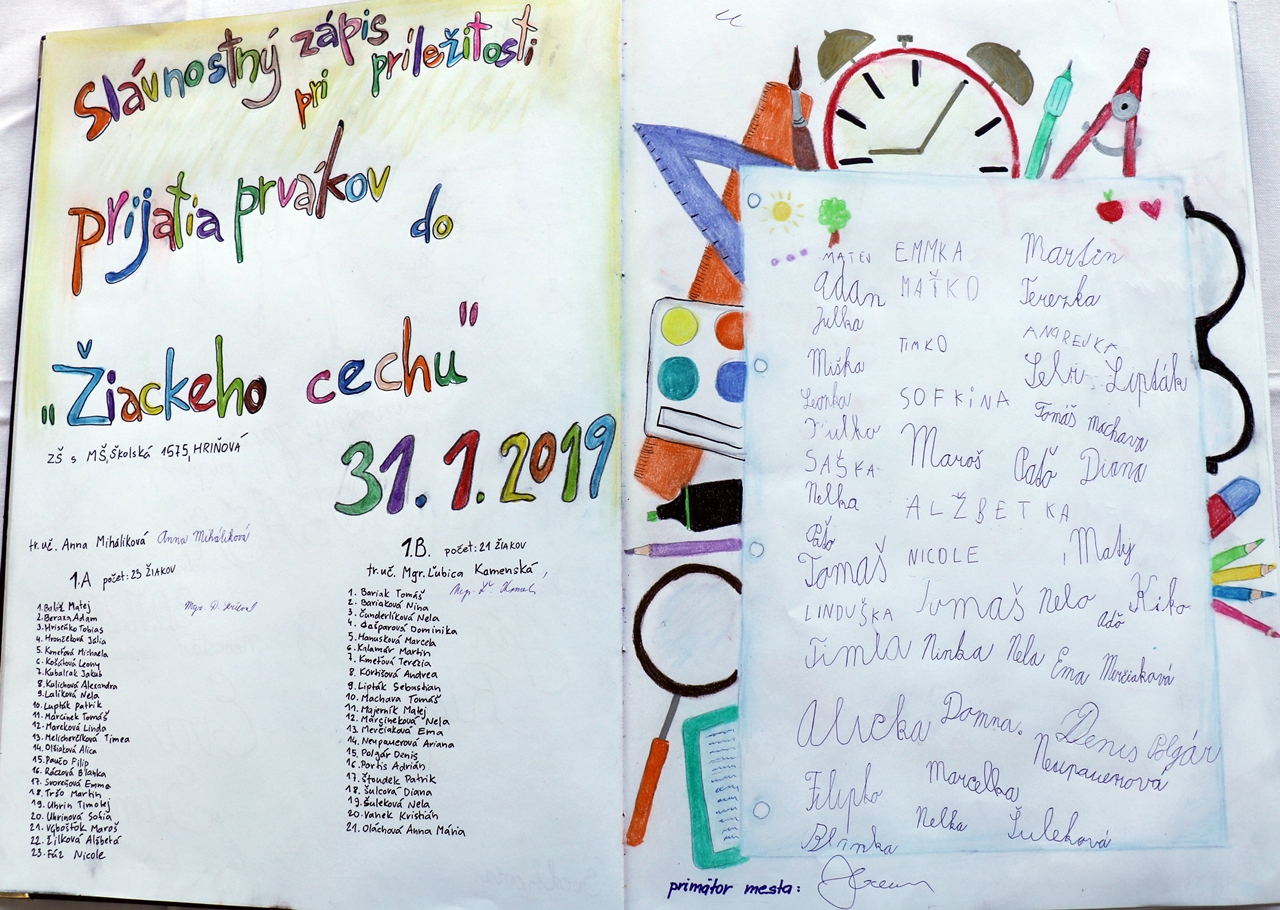 Slávnostný zápis
pri príležitosti
prijatia prvákov do
"Žiackeho cechu"
ZŠ s MŠ, Školská 1575, HRIŇOVÁ
31.1.2019
tr.uč. Anna Miháliková Anna Miháliková
1.A počet: 23 ŽIAKOV
1. Baláž Matej
2. Beraxa Adam
3. Hriseňko Tobias
4. Hronžeková Júlia
5. Kmeťová Michaela
6. Košútová Leony
7. Kubaliak Jakub
8. Kulichová Alexandra
9. Laliková Nela
10. Lupták Patrik
11. Marcinek Tomáš
12. Mareková Linda
13. Melicherčíková Timea
14. Olšiaková Alica
15. Paučo Filip
16. Ráczová Blanka
17. Svoreňová Emma
18. Tršo Martin
19. Uhrin Timotej
20. Uhrinová Sofia
21. Výbošťok Maroš
22. Žilková Alžbeta
23. Fáz Nicole
1.B. počet: 21 ŽIAKOV
tr.uč. Mgr. Ľubica Kamenská
1. Bariak Tomáš
2. Bariaková Nina
3. Čunderlíková Nela
4. Gašparová Dominika
5. Hanusková Marcela
6. Krlamár Martin
7. Kmeťová Terézia
8. Kortišová Andrea
9. Lipták Sebastian
10. Machava Tomáš
11. Majerník Matej
12. Marcineková Nela
13. Merčiaková Ema
14. Neupauerová Ariana
15. Polgár Denis
16. Portis Adrián
17. Štoudek Patrik
18. Šulcová Diana
19. Šuleková Nela
20. Vanek Kristián
21. Oláchová Anna Mária
MATEJ EMMKA Martin
Adam MAŤKO Terezka
Julka
TIMKO ANDREJKA
Miška Lipták
Leonka SOFKINA Tomáš Machava
SAŠKA Maroš Paťo Diana
Nelka ALŽBETKA
Paťo
Tomáš NICOLE Matj
LINDUŠKA Tomáš Nela Kiko
Aďo
Timla Ninka Nela Ema Merčiaková
Alicka Domna. Denis Polgár
Neupauerová
Filipko Marcelka
Blanka Nelka Šuleková
primátor mesta: